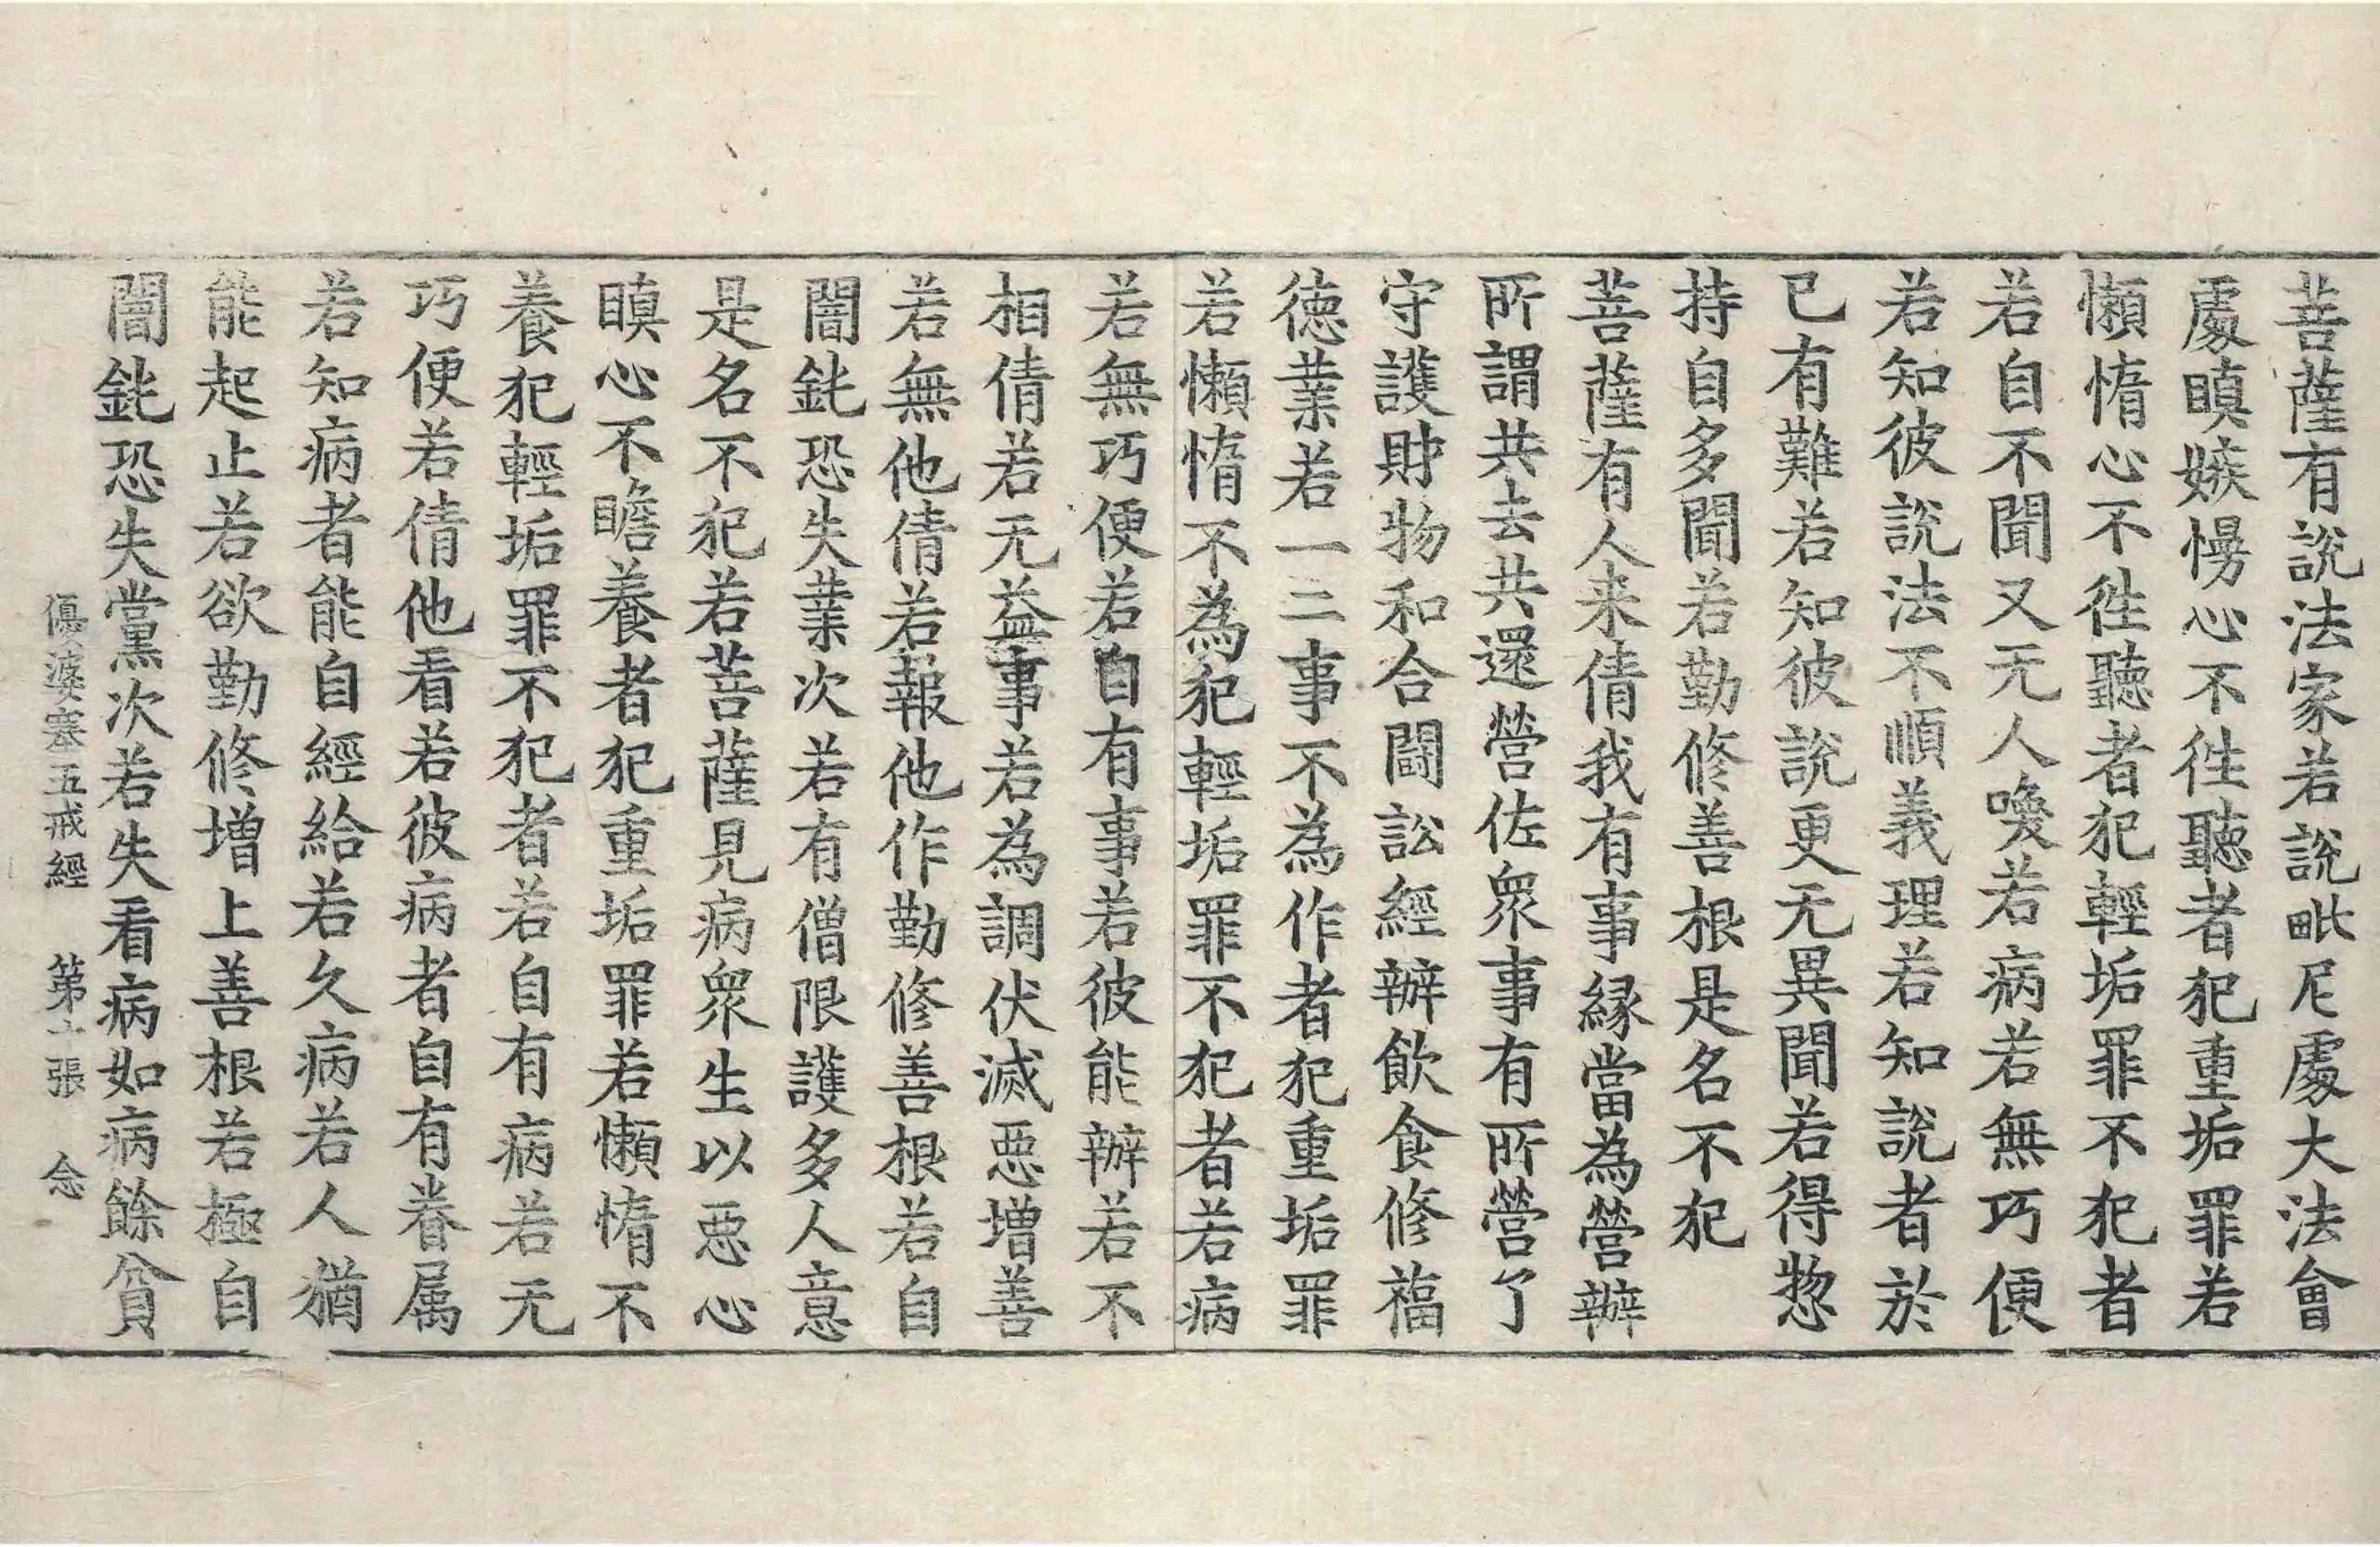 菩薩有說法家若說毗尼處大法會
處瞋嫉慢心不徃聽者犯重垢罪若
懶惰心不徃聽者犯輕垢罪不犯者
若自不聞又无人喚若病若無巧便
若知彼說法不順義理若知說者於
已有難若知彼說更无異聞若得惣
持自多聞若勤修善根是名不犯
菩薩有人来倩我有事緣當為營辦
所謂共去共還營佐衆事有所營了
守護財物和合鬪訟經辦飲食修福
德業若一二事不為作者犯重垢罪
若懶惰不為犯輕垢罪不犯者若病
若無巧便若自有事若彼能辦若不
相倩若无益事若為調伏滅惡增善
若無他倩若報他作勤修善根若自
闇鈍恐失業次若有僧限護多人意
是名不犯若菩薩見病衆生以惡心
瞋心不瞻養者犯重垢罪若懶惰不
養犯輕垢罪不犯者若自有病若无
巧便若倩他看若彼病者自有眷属
若知病者能自經給若久病若人猶
能起止若欲勤修增上善根若極自
闇鈍恐失黨次若失看病如病餘貧
優婆塞五戒經 第十張 念